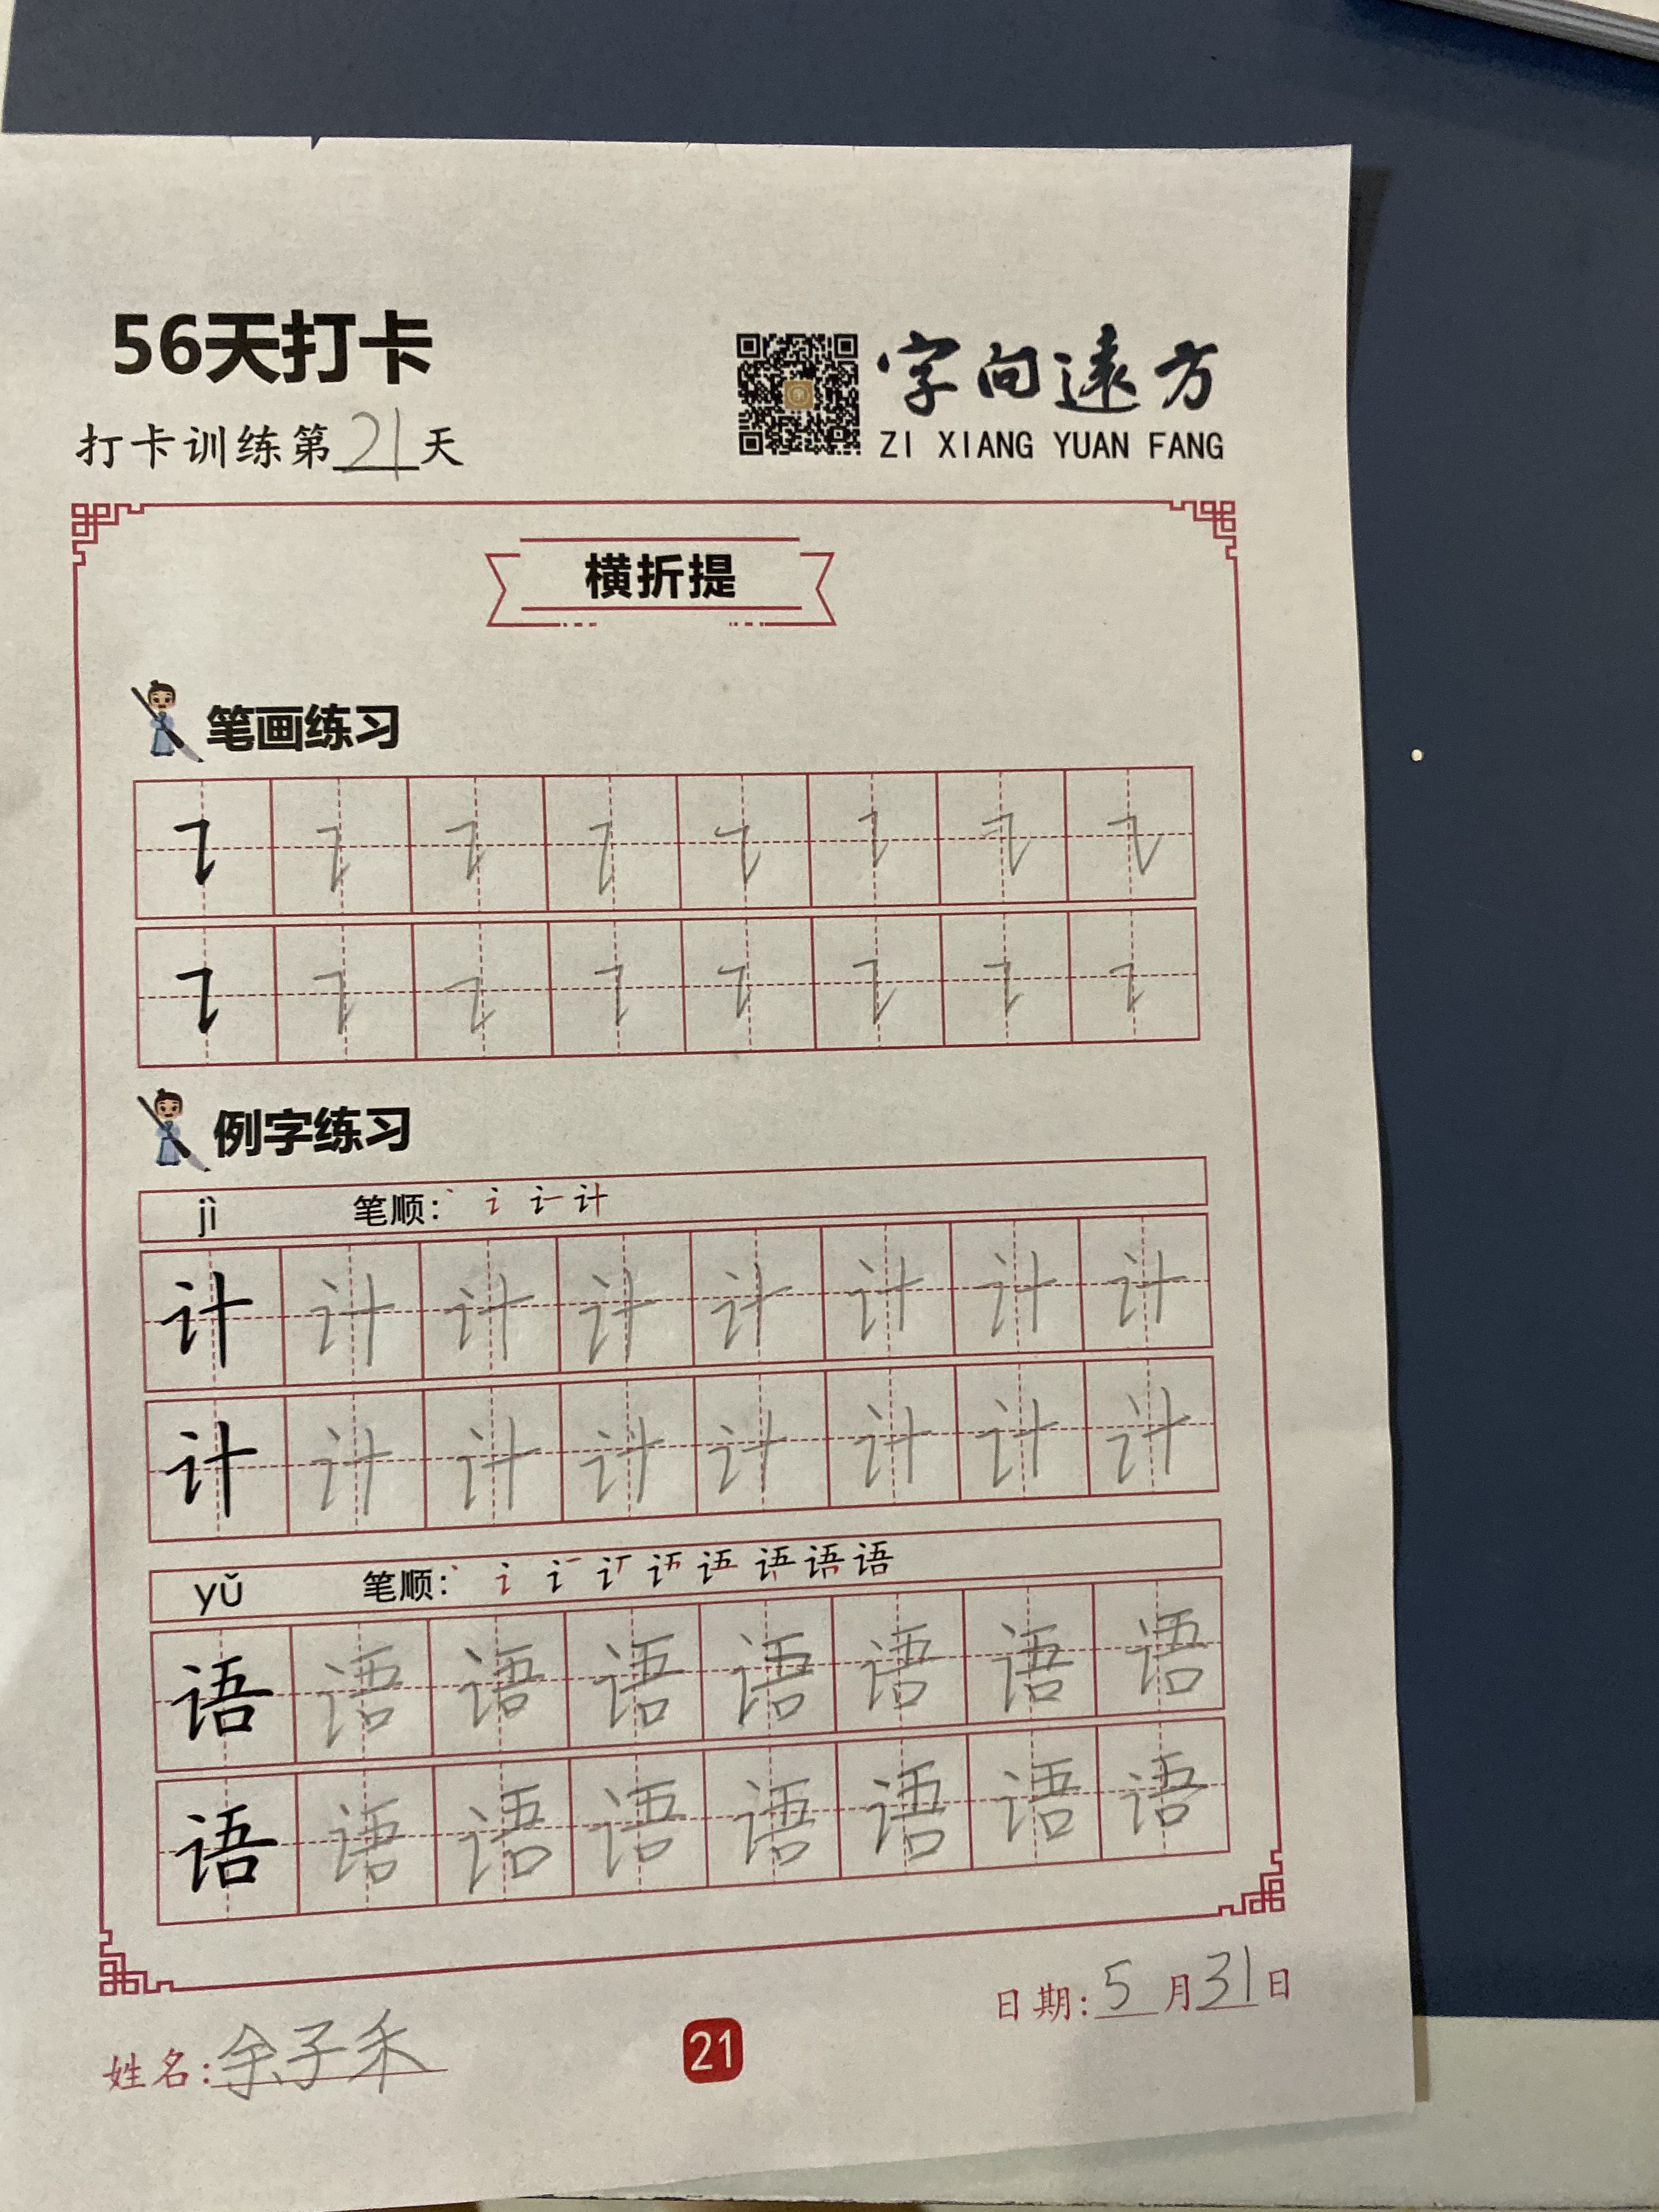 56天打卡
字向遠方
打卡训练第21天
ZI XIANG YUAN FANG
横折提
笔画练习
例字练习
jì 笔顺：
计 计 计 计 计 计 计 计
计 计 计 计 计 计 计 计
yǔ 笔顺： 语
语 语 语 语 语 语 语 语
语 语 语 语 语 语 语 语
日期：5月31日
姓名：余子禾
21